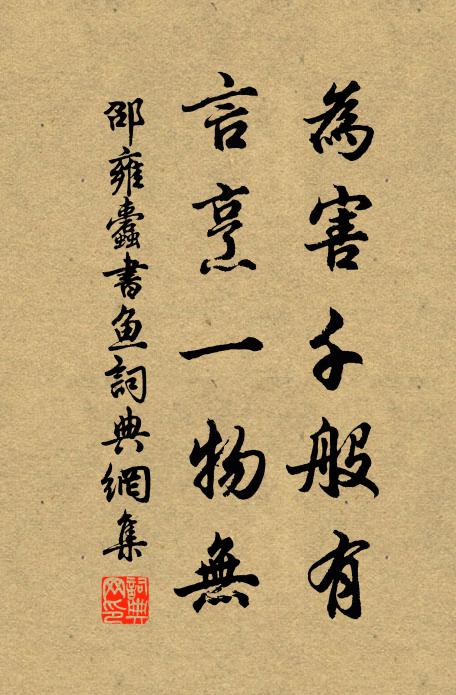 為害千般有
言烹一物無
邵雍蠹書魚詞典網集
詞典网印